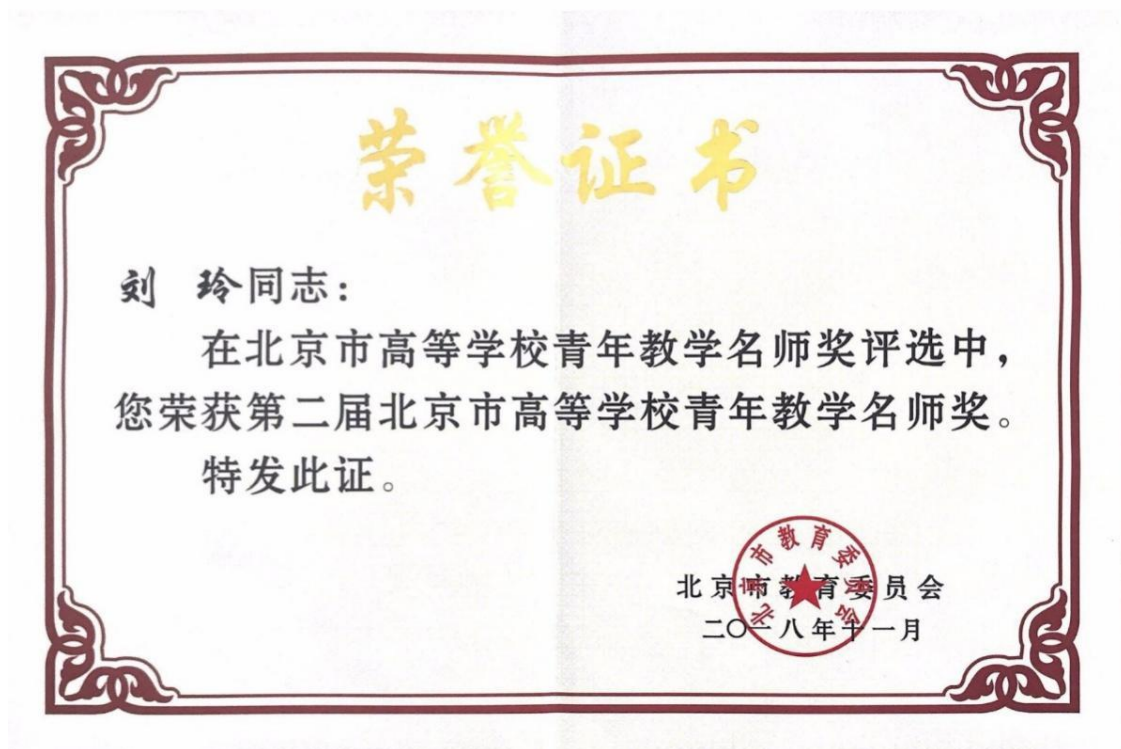 荣誉证书
刘 玲同志：
在北京市高等学校青年教学名师奖评选中，
您荣获第二届北京市高等学校青年教学名师奖。
特发此证。
北京市教育委员会
北京市教育委员会
二〇一八年十一月